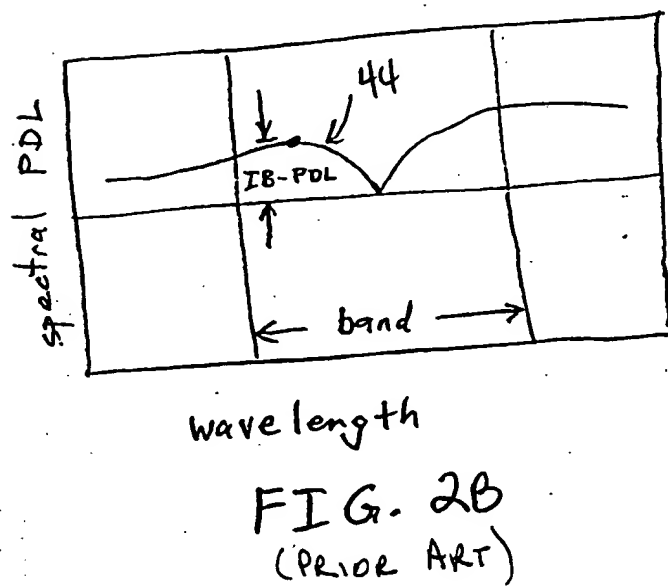 44
spectral PDL
IB-PDL
band
wavelength
FIG. 2B
(PRIOR ART)